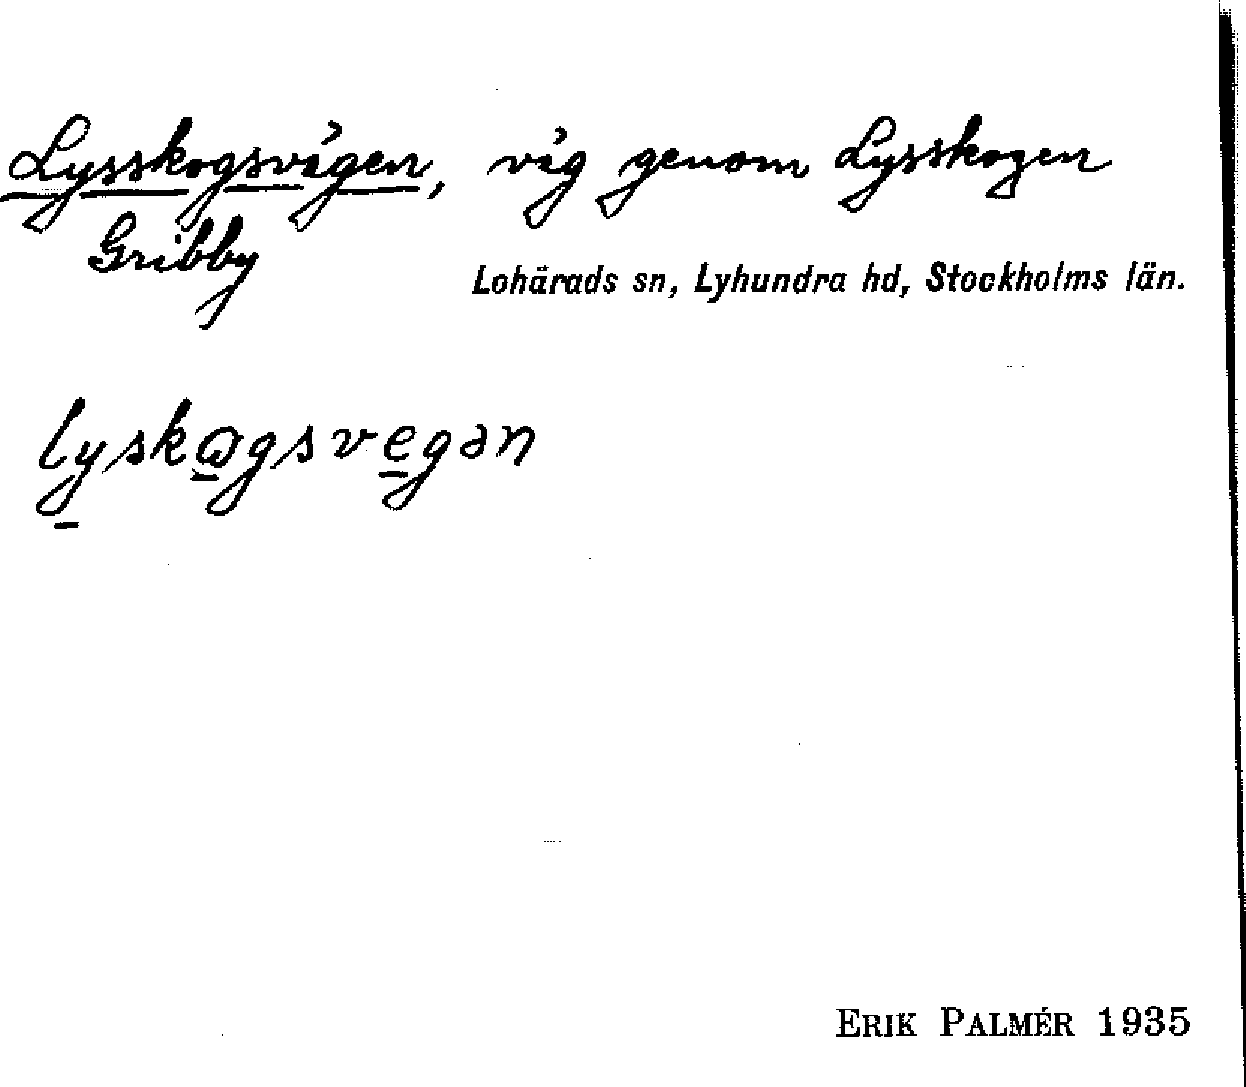 Lysskogsvägen, väg genom Lysskogen
Gribby
Lohärads sn, Lyhundra hd, Stockholms län.
lyskωgsvegən
ERIK PALMÉR 1935